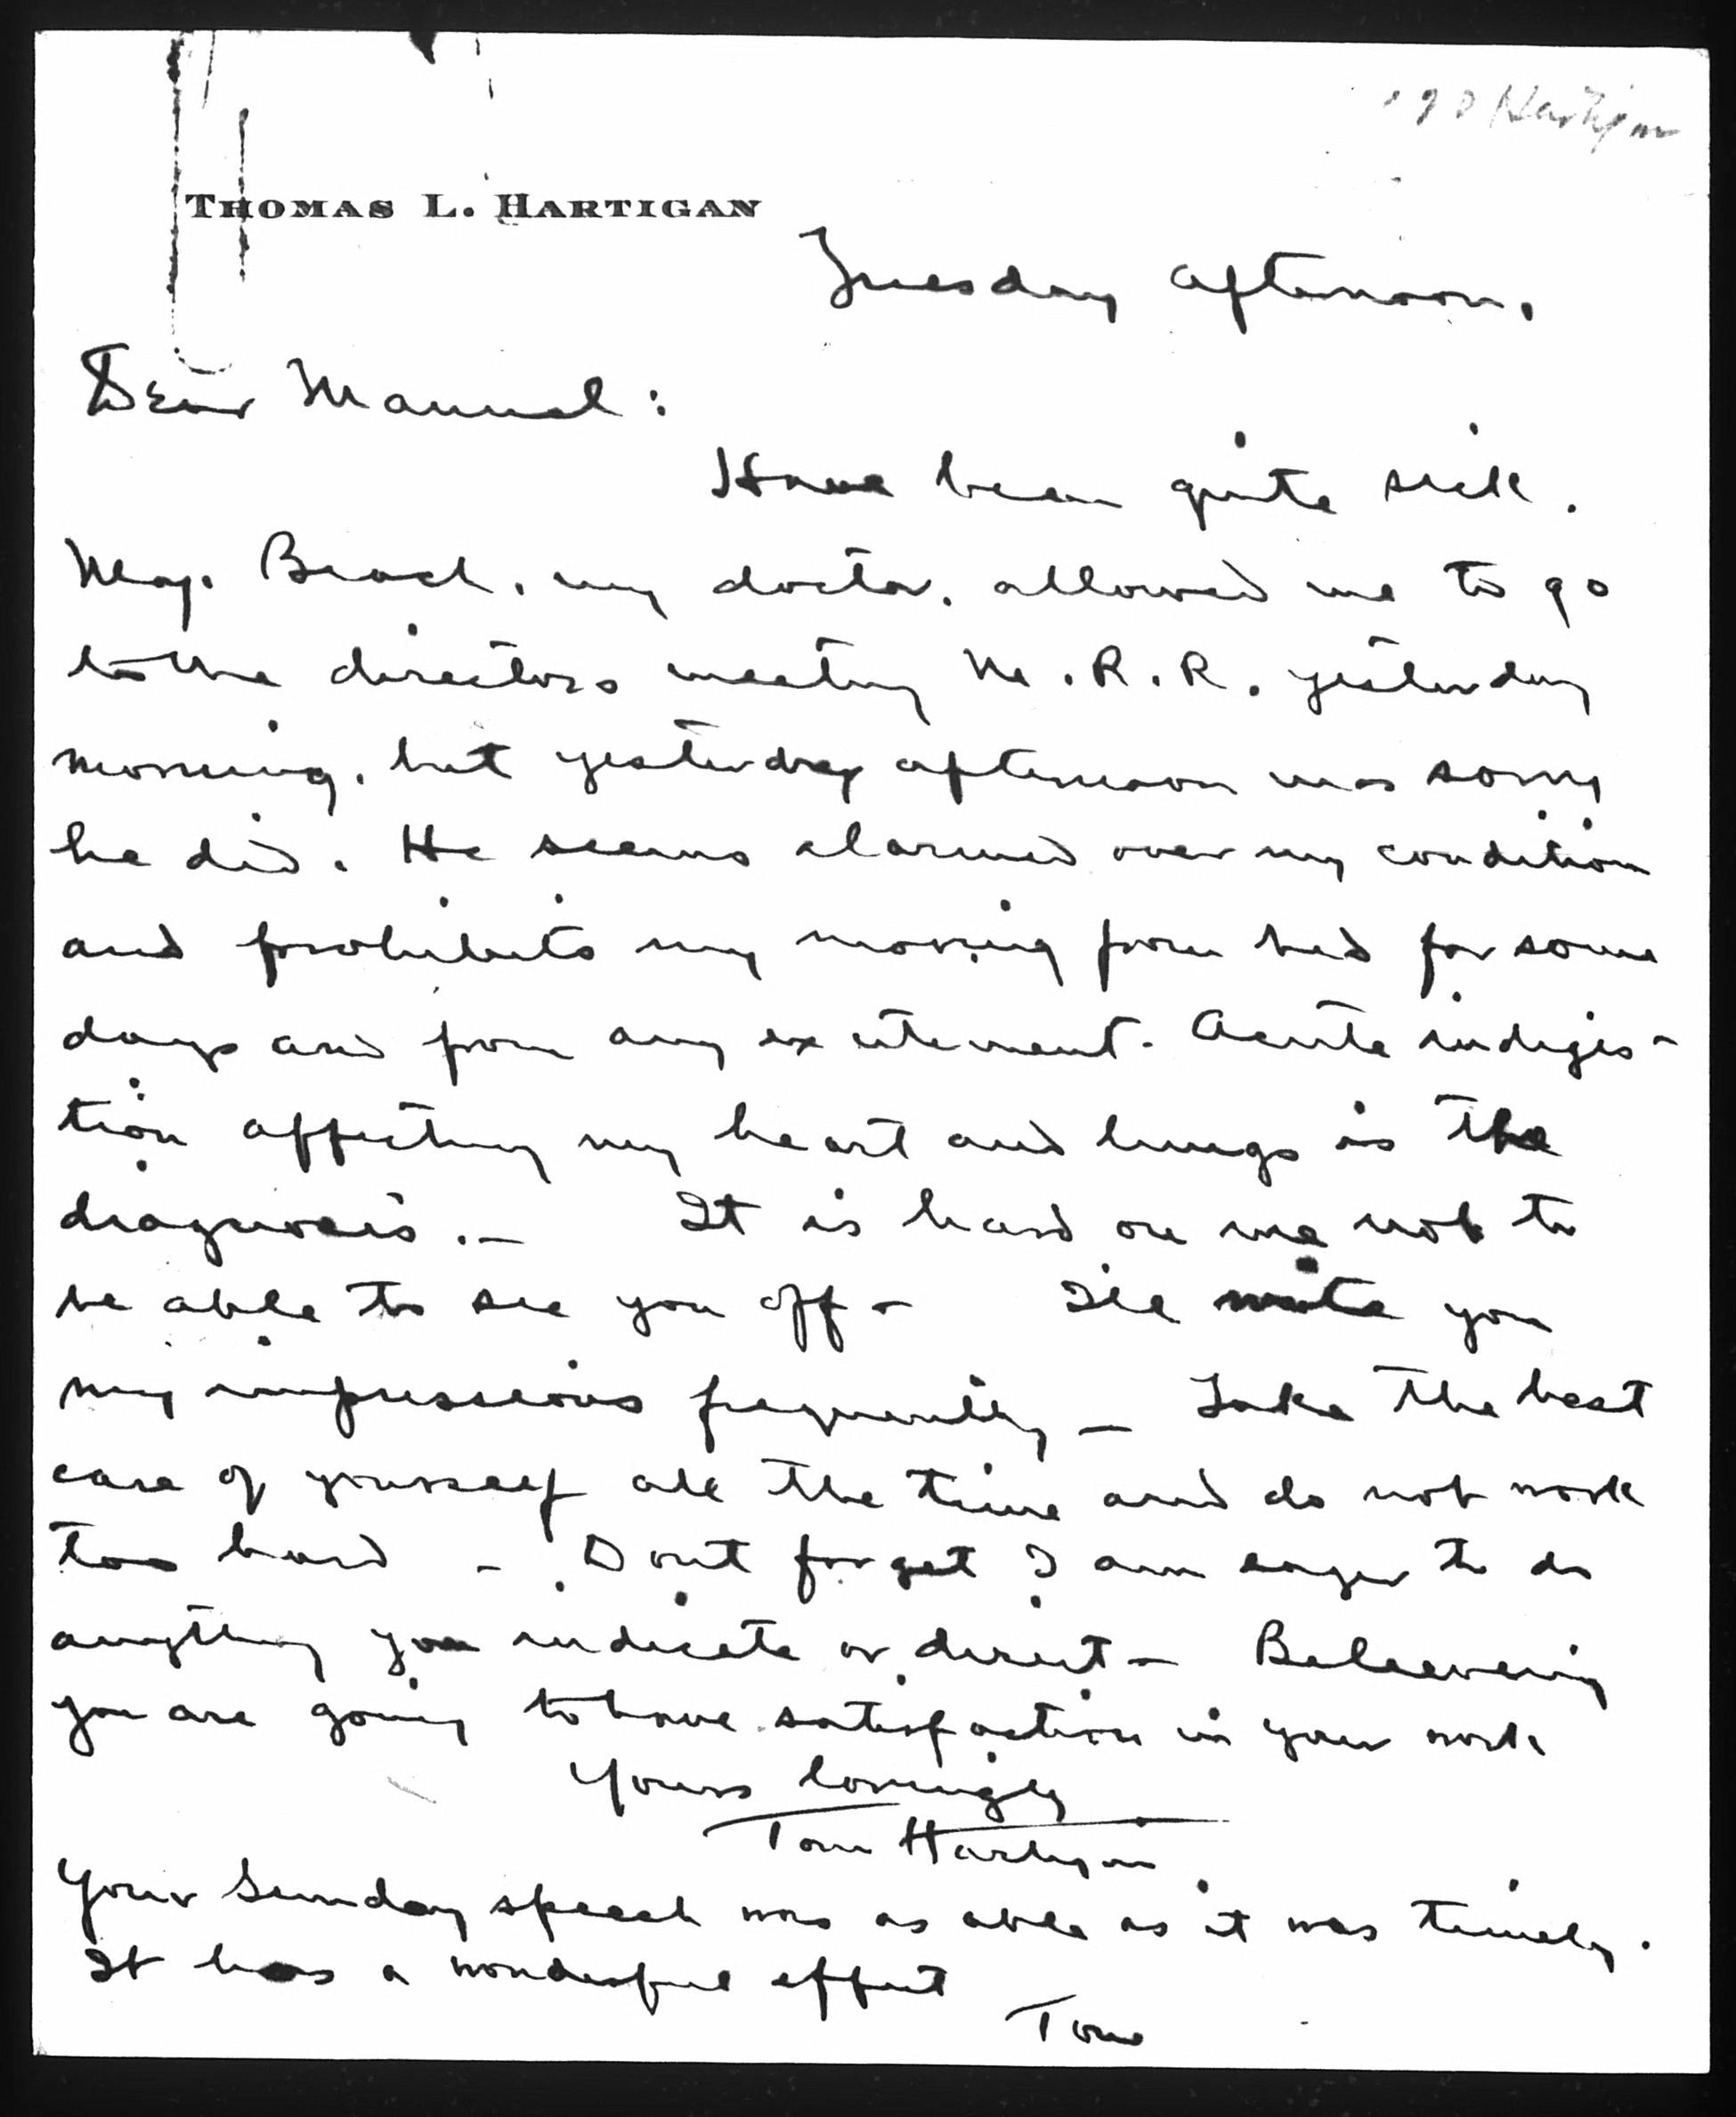 Hartigan
THOMAS L. HARTIGAN
Tuesday afternoon.
Dear Manuel:
Have been quite sick.
Maj. Beach, my doctor, allowed me to go
to the directors meeting M.R.R. yesterday
morning, but yesterday afternoon was sorry
he did. He seems alarmed over my condition
and prohibits my moving from bed for some
days and from any excitement. Acute indiges-
tion affecting my heart and lungs is the
diagnosis.— It is hard on me not to
be able to see you off — I'll write you
my impressions frequently — Take the best
care of yourself all the time and do not work
too hard — Don't forget I am eager to do
anything you indicate or direct — Believing
you are going to have satisfaction in your work
Yours lovingly
Tom Hartigan
Your Sunday speech was as able as it was timely.
It has a wonderful effect
Tom